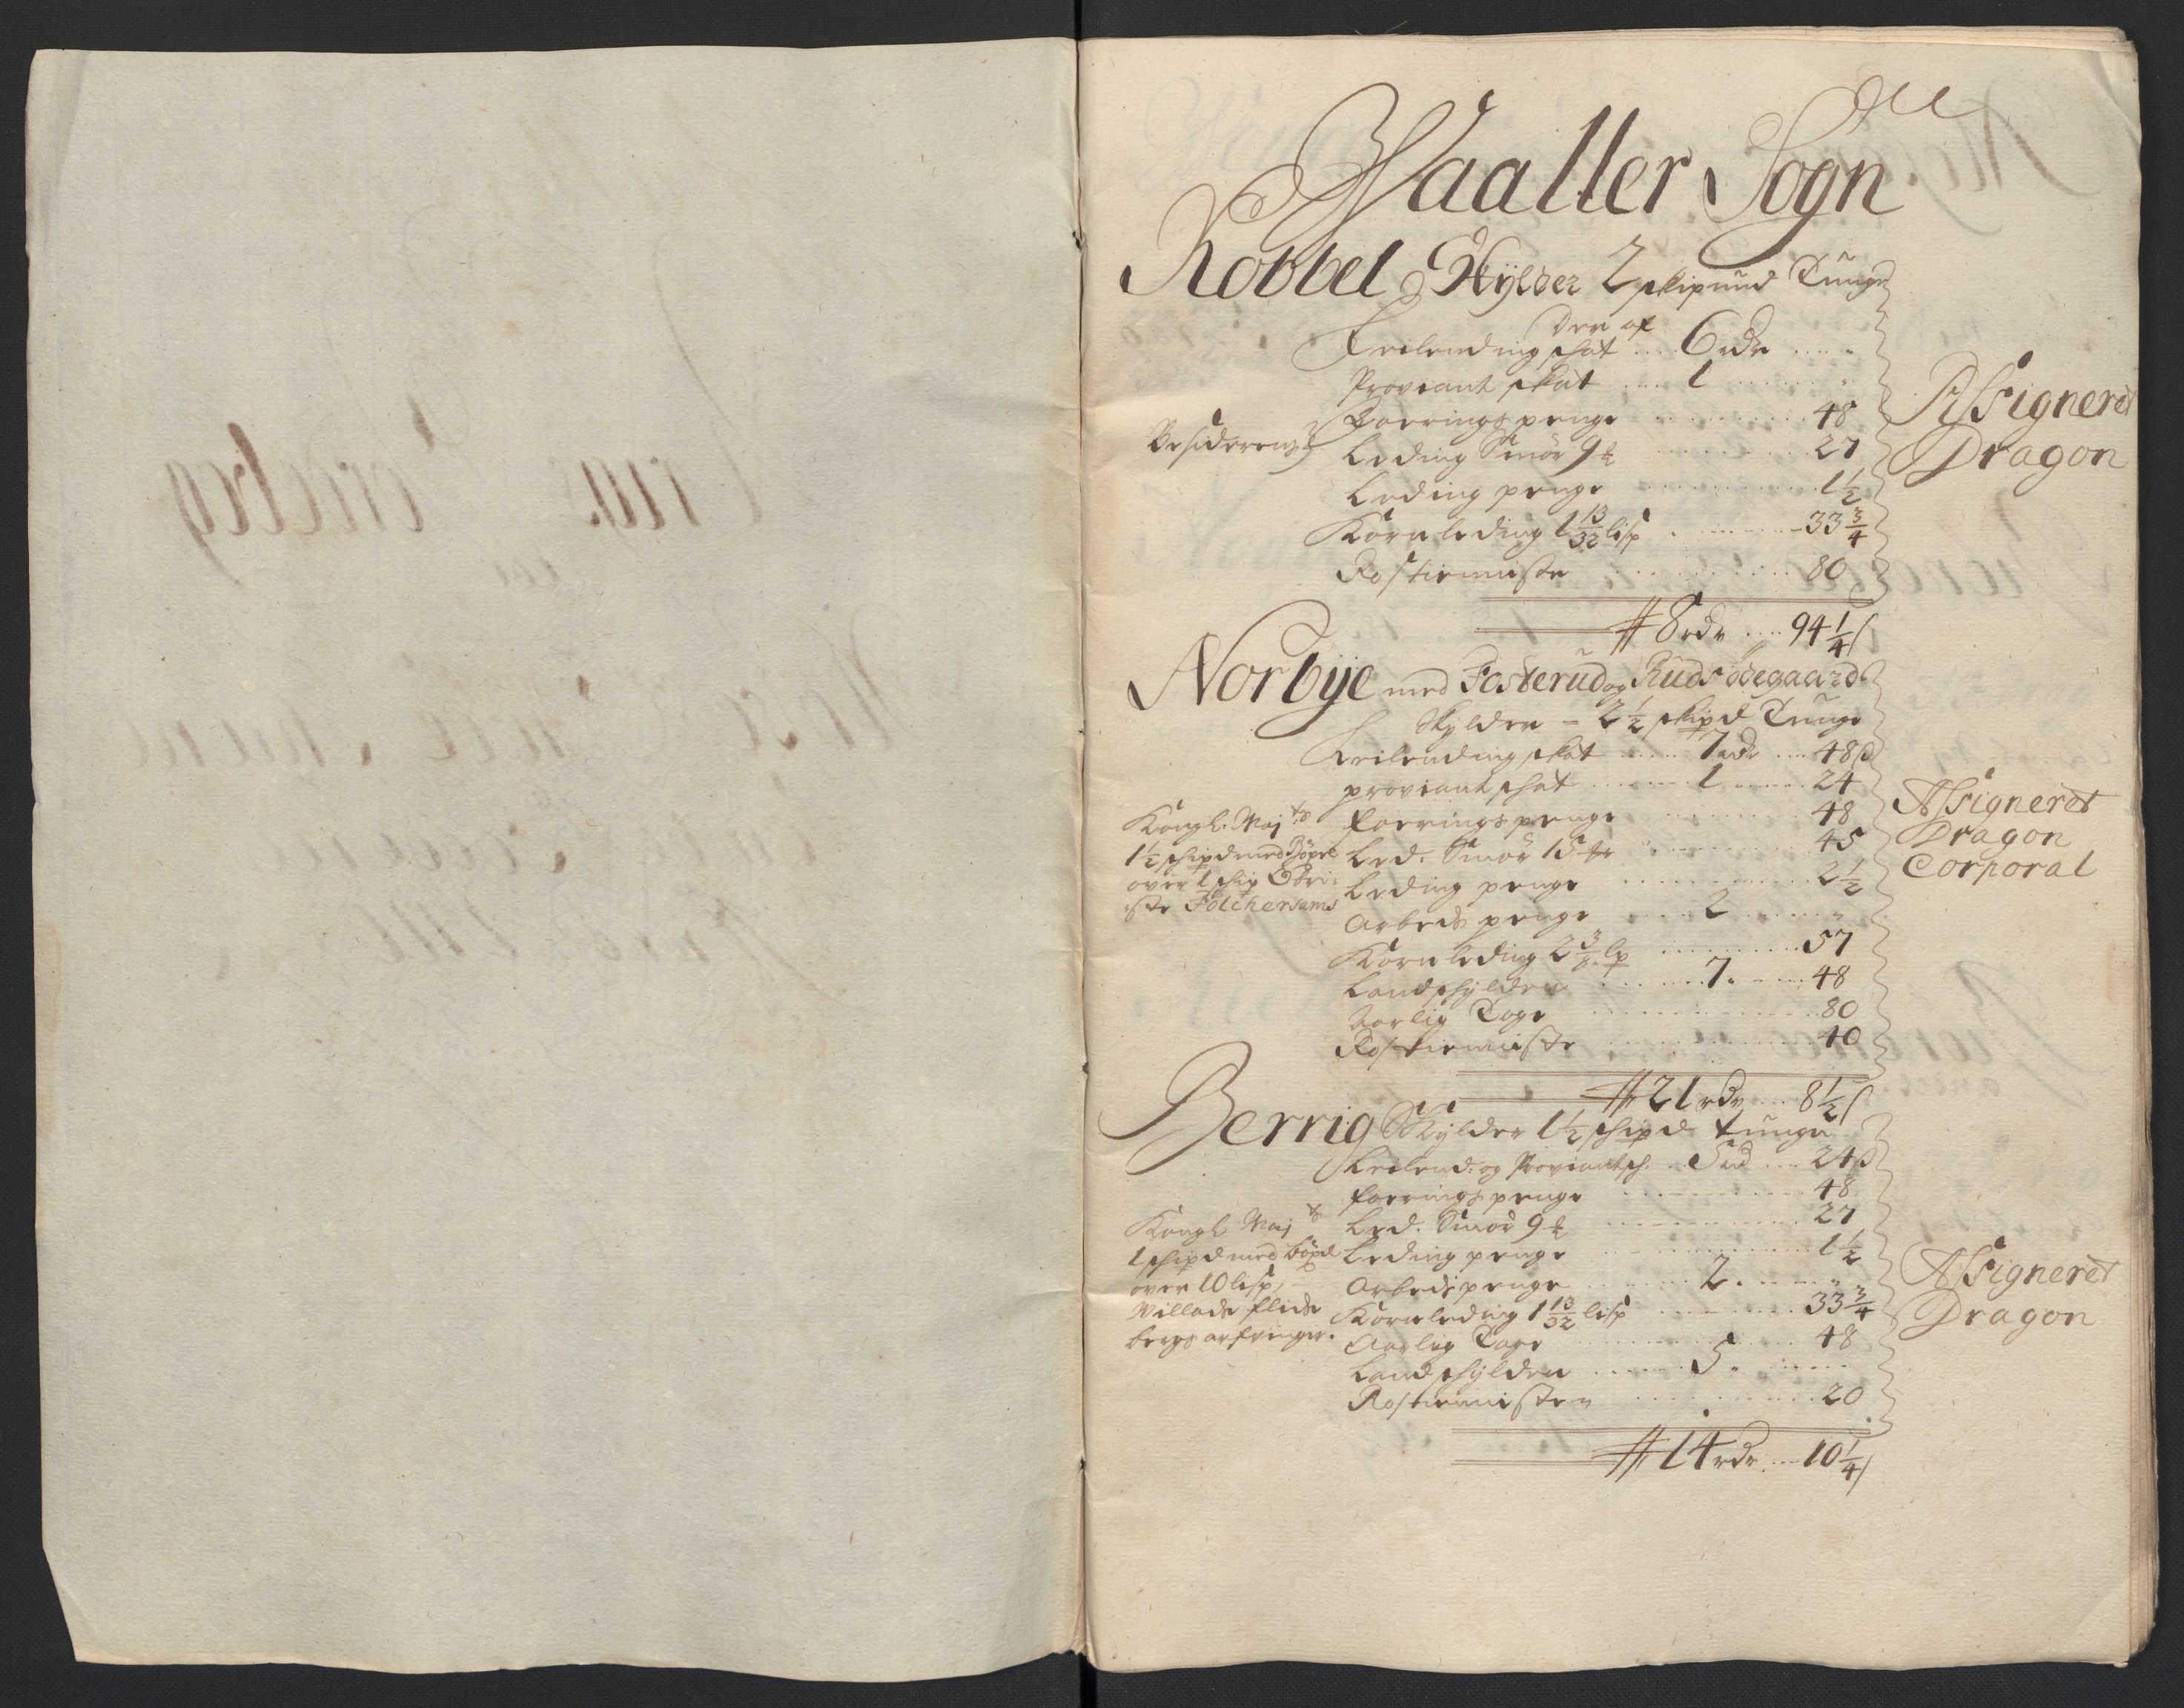 Vaaller Sogn
Robbel Skylder 2 skipund Tunge
Der af
Leilending skat 6 rdr
Proviant skat 1
Foerings penge 48
Leding Smör 9 ℔ 27
Leding penge 1½
Kornleding 1 13/32 lisp 33¾
Rostieniste 80
8 rdr 94¼ s
Assigneret
Dragon
Norbÿe med Fosterud og Ruds ödegaard
Skylder 2½ skipd Tunge
Leilending skat 7 rdr 48 s
proviant skat 1 24
foerings penge 48
Led. Smör 15 ℔ 45
Leding penge 2½
Arbeds penge 2
Kornleding 2 3/8 lp 57
Landskylden 7 48
Aarlig Tage 80
Rostieniste 40
21 rdr 8½ s
Kongl. Maj ts
1½ schipd med Böxel
over 1 schip Obri
ste Fölchersams
Assigneret
Dragon
Corporal
Berrig Skylder 1½ schipd tunge
Leilend: og Proviantsk. 5 rd 24 s
foerings penge 48
Led. Smör 9 ℔ 27
Leding penge 1½
Arbeds penge 2
Kornleding 1 13/32 lisp 33¾
Aarlig Tage 48
Landskylden 5
Rostienisten 20
14 rdr 10¼ s
Kongl Maj ts
1 schipd med böxel
over 10 lisp,
Villads
bergs arfvinger.
Assigneret
Dragon